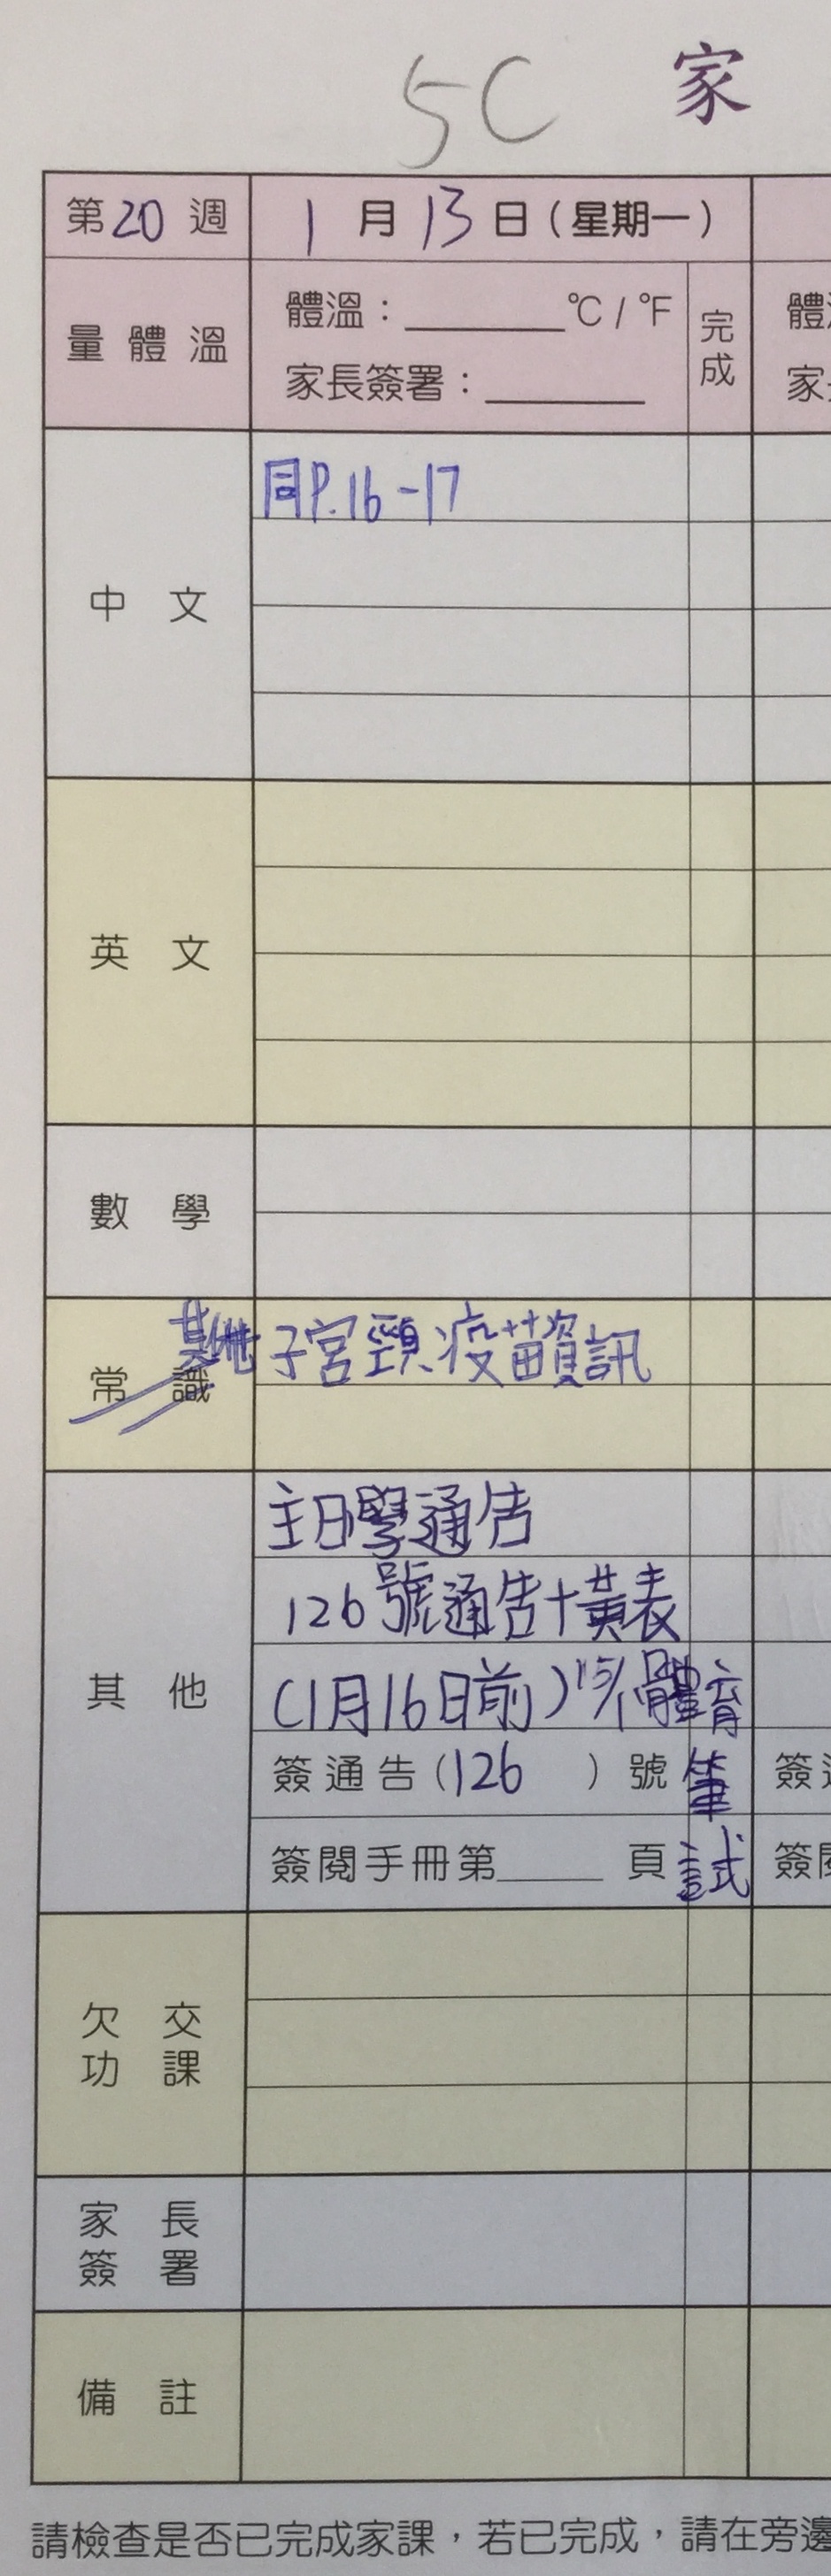 5C 家
第20週 1月13日(星期一)
量體溫 體溫:______°C / °F 完成 體
家長簽署:______ 家
中文 同P.16-17
英文
數學
常識 其他 子宮頸疫苗資訊
其他 主日學通告
126號通告+黃表
(1月16日前) 15/1體育
簽通告(126 )號 筆 簽
簽閱手冊第____頁 試 簽
欠交
功課
家長
簽署
備註
請檢查是否已完成家課,若已完成,請在旁邊